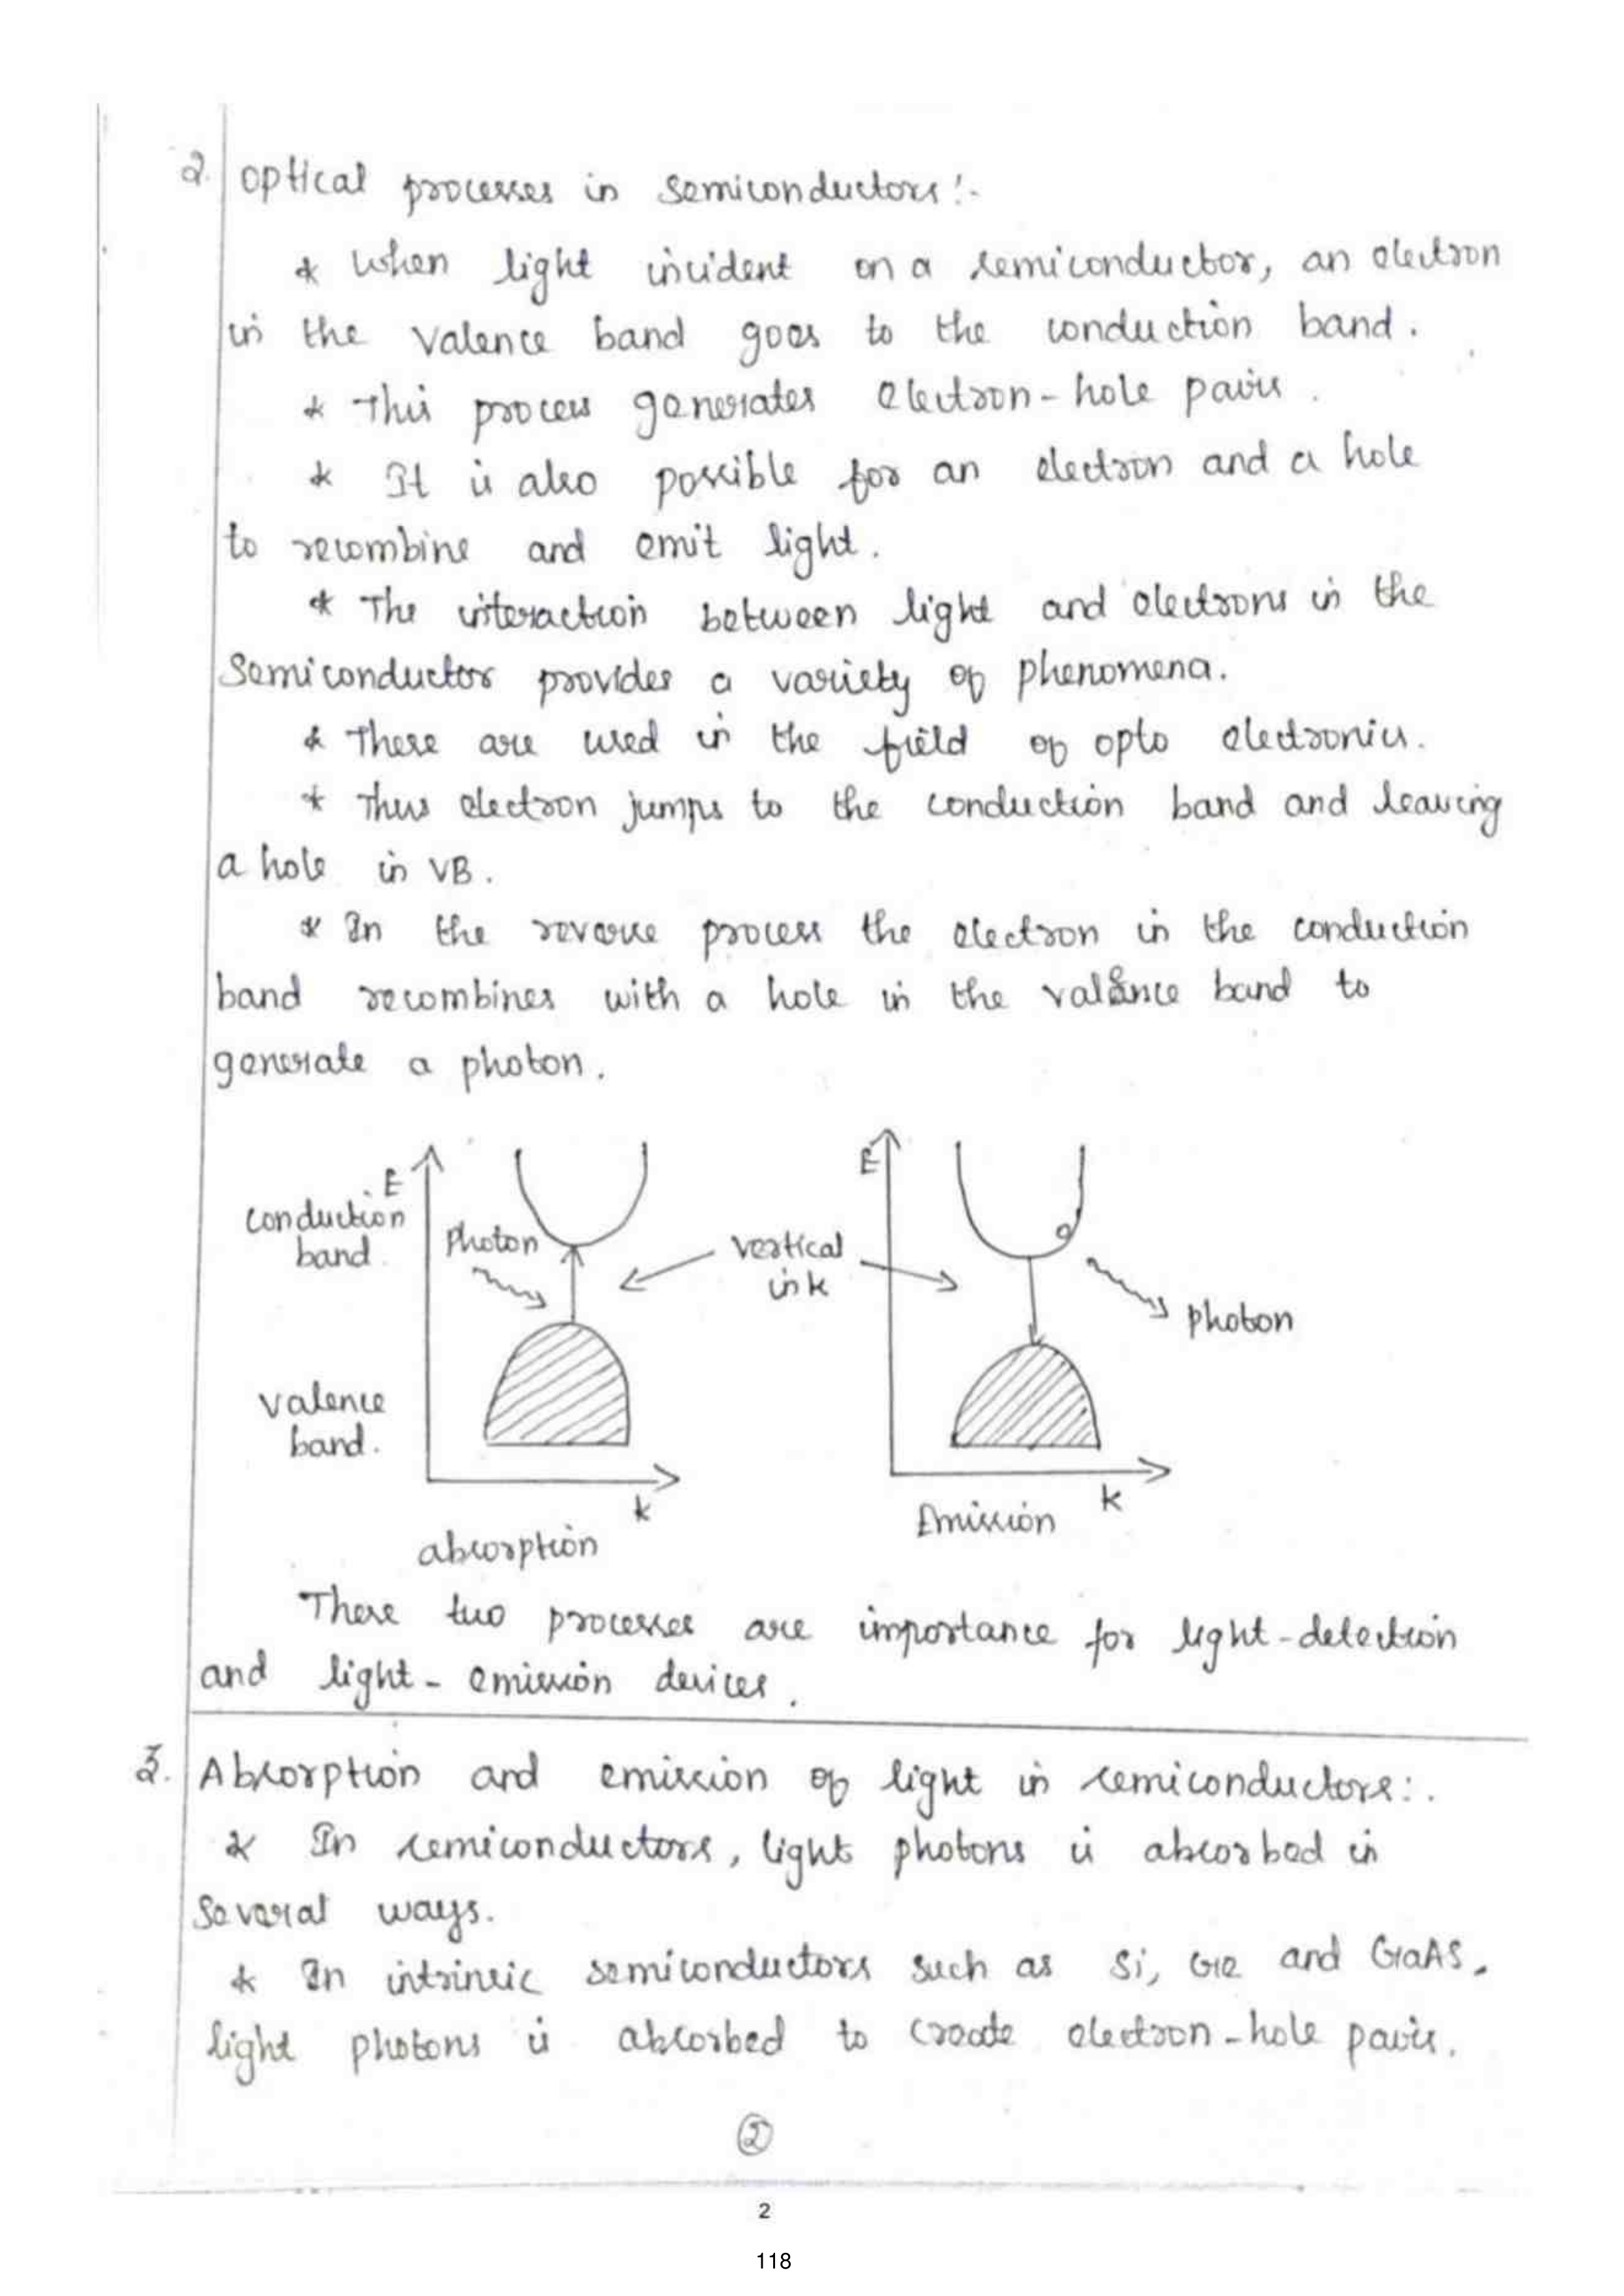 2. Optical processes in semiconductors:-
* When light incident on a semiconductor, an electron
in the valence band goes to the conduction band.
* This process generates electron-hole pairs.
* It is also possible for an electron and a hole
to recombine and emit light.
* The interaction between light and electrons in the
Semiconductor provides a variety of phenomena.
* These are used in the field of opto electronics.
* Thus electron jumps to the conduction band and leaving
a hole in VB.
* In the reverse process the electron in the conduction
band recombines with a hole in the valence band to
generate a photon.
E
E
conduction
band.
Photon
vertical
in k
photon
valence
band.
k
k
absorption
Emission
These two processes are importance for light-detection
and light-emission devices.
3. Absorption and emission of light in semiconductors:-
* In semiconductors, light photons is absorbed in
Several ways.
* In intrinsic semiconductors such as Si, Ge and GaAS,
light photons is absorbed to create electron-hole pairs.
2
2
118